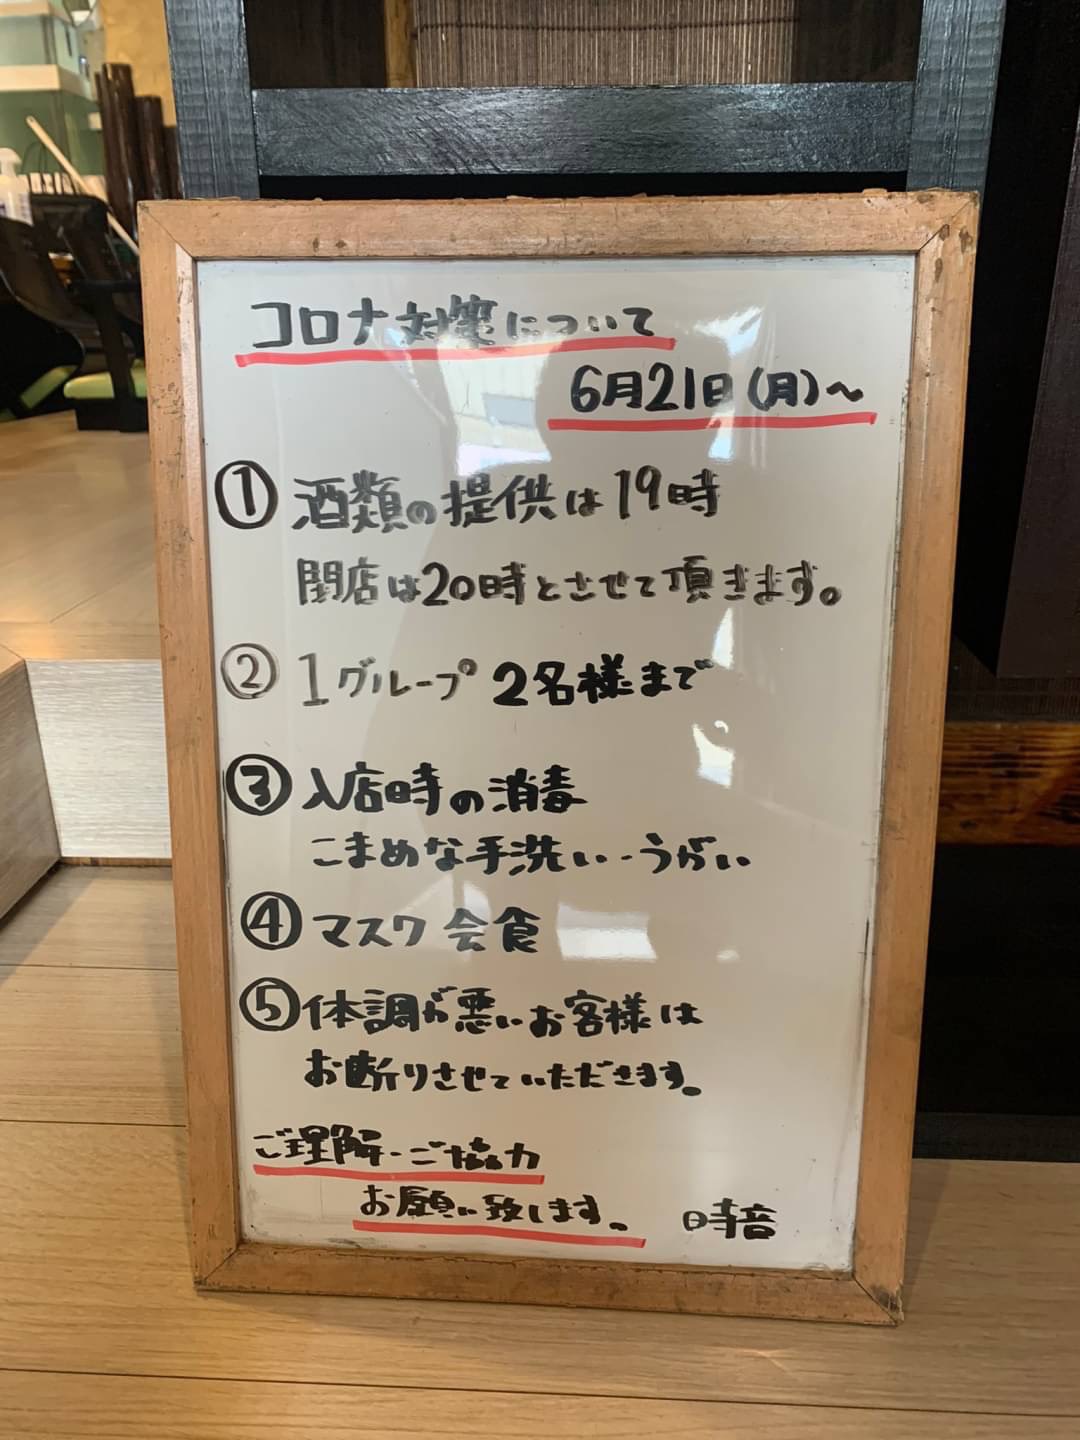 コロナ対策について
6月21日(月)〜
① 酒類の提供は19時
閉店は20時とさせて頂きます。
② 1グループ 2名様まで
③ 入店時の消毒
こまめな手洗い・うがい
④ マスク会食
⑤ 体調が悪いお客様は
お断りさせていただきます。
ご理解・ご協力
お願い致します。 時音